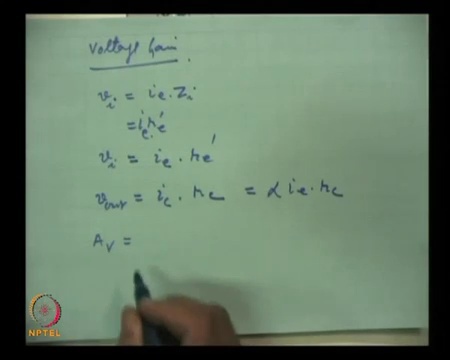 Voltage Gain
v_i = i_e . Z_i
= i_e . r_e'
v_i = i_e . r_e'
v_out = i_c . r_c = α i_e . r_c
A_v =
NPTEL